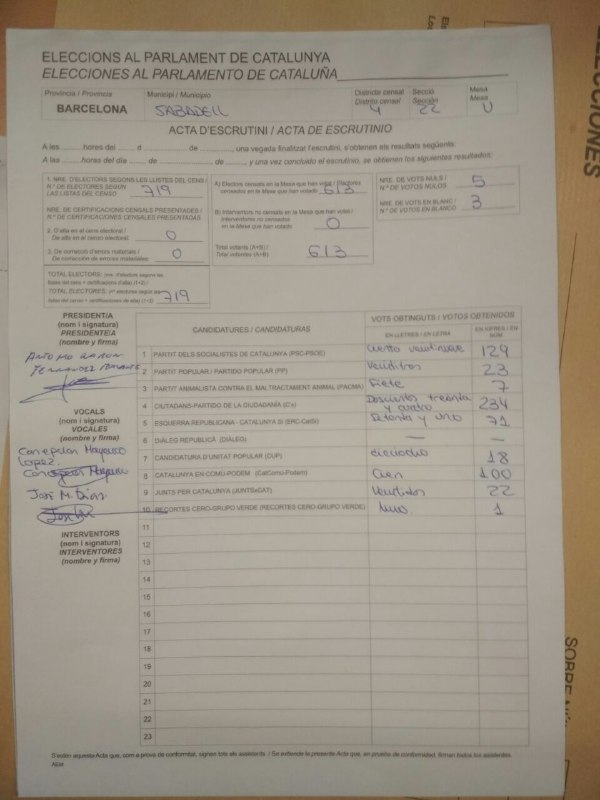 ELECCIONS AL PARLAMENT DE CATALUNYA
ELECCIONES AL PARLAMENTO DE CATALUÑA
Provincia / Provincia
BARCELONA
Municipi / Municipio
SABADELL
Districte censal
Distrito censal
4
Secció
Sección
22
Mesa
Mesa
U
ACTA D'ESCRUTINI / ACTA DE ESCRUTINIO
A les ......... hores del ......... d ......... de ........., una vegada finalitzat l'escrutini, s'obtenen els resultats següents:
A las ......... horas del día ......... de ......... de ......... y una vez concluido el escrutinio, se obtienen los siguientes resultados:
1. NRE. D'ELECTORS SEGONS LES LLISTES DEL CENS /
N.º DE ELECTORES SEGÚN
LAS LISTAS DEL CENSO
719
NRE. DE CERTIFICACIONS CENSALS PRESENTADES /
N.º DE CERTIFICACIONES CENSALES PRESENTADAS
2. D'alta en el cens electoral /
De alta en el censo electoral
0
3. De correcció d'errors materials /
De corrección de errores materiales
0
TOTAL ELECTORS:
TOTAL ELECTORES:
719
A) Electors censats en la Mesa que han votat / Electores
censados en la Mesa que han votado
613
B) Interventors no censats en la Mesa que han votat /
Interventores no censados en la
Mesa que han votado
0
Total votants (A+B) /
Total votantes (A+B)
613
NRE. DE VOTS NULS /
N.º DE VOTOS NULOS
5
NRE. DE VOTS EN BLANC /
N.º DE VOTOS EN BLANCO
3
PRESIDENT/A
(nom i signatura)
PRESIDENTE/A
(nombre y firma)
ANTONIO RAMON
FERNANDEZ
VOCALS
(nom i signatura)
VOCALES
(nombre y firma)
Concepcion
Lopez
José M. Díaz
INTERVENTORS
(nom i signatura)
INTERVENTORES
(nombre y firma)
CANDIDATURES / CANDIDATURAS
VOTS OBTINGUTS / VOTOS OBTENIDOS
EN LLETRES / EN LETRA
EN XIFRES / EN NÚM.
1 PARTIT DELS SOCIALISTES DE CATALUNYA (PSC-PSOE) ciento veintinueve 129
2 PARTIT POPULAR / PARTIDO POPULAR (PP) veintitres 23
3 PARTIT ANIMALISTA CONTRA EL MALTRACTAMENT ANIMAL (PACMA) Siete 7
4 CIUTADANS-PARTIDO DE LA CIUDADANÍA (C's) Doscientos treinta y cuatro 234
5 ESQUERRA REPUBLICANA - CATALUNYA SÍ (ERC-CatSí) Setenta y uno 71
6 DIÀLEG REPUBLICÀ (DIÀLEG) — —
7 CANDIDATURA D'UNITAT POPULAR (CUP) dieciocho 18
8 CATALUNYA EN COMÚ-PODEM (CatComú-Podem) Cien 100
9 JUNTS PER CATALUNYA (JUNTSxCAT) Veintidos 22
10 RECORTES CERO-GRUPO VERDE (RECORTES CERO-GRUPO VERDE) Uno 1
11
12
13
14
15
16
17
18
19
20
21
22
23
S'estén aquesta Acta que, com a prova de conformitat, signen tots els assistents. / Se extiende la presente Acta que, en prueba de conformidad, firman todos los asistentes.
ELECCIONES
SOBRE